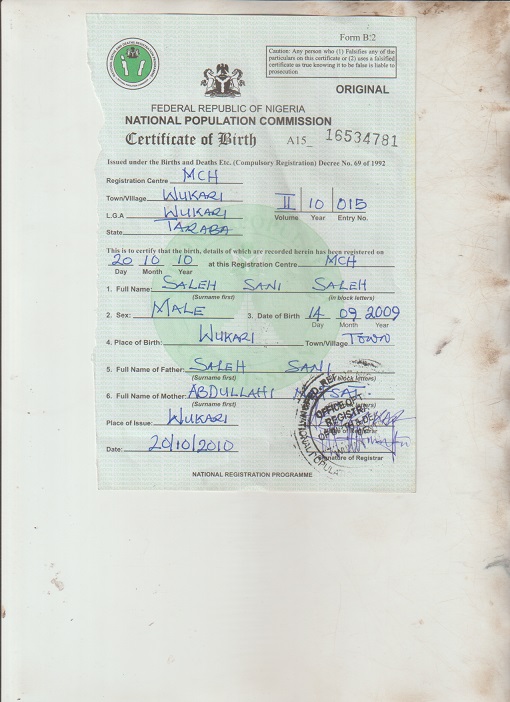 Form B:2
Caution: Any person who (1) Falsifies any of the
particulars on this certificate or (2) uses a falsified
certificate as true knowing it to be false is liable to
prosecution
ORIGINAL
FEDERAL REPUBLIC OF NIGERIA
NATIONAL POPULATION COMMISSION
Certificate of Birth A15_ 16534781
Issued under the Births and Deaths Etc. (Compulsory Registration) Decree No. 69 of 1992
Registration Centre MCH
Town/Village WUKARI II 10 015
L.G.A WUKARI Volume Year Entry No.
State TARABA
This is to certify that the birth, details of which are recorded herein has been registered on
20 10 10 at this Registration Centre MCH
Day Month Year
1. Full Name: SALEH SANI SALEH
(Surname first) (in block letters)
2. Sex: MALE 3. Date of Birth 14 09 2009
Day Month Year
4. Place of Birth: WUKARI Town/Village TOWN
5. Full Name of Father: SALEH SANI
(Surname first) block letters)
6. Full Name of Mother: ABDULLAHI
(Surname first) letters)
Place of Issue: WUKARI
OFFICE OF T
REGISTRA
Date: 20/10/2010
Signature of Registrar
NATIONAL REGISTRATION PROGRAMME